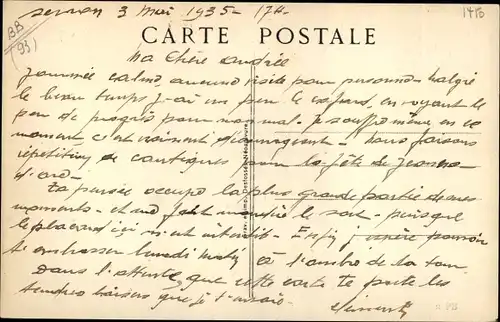 3 Mai 1935 - 17H.
1450
BB
(93)
CARTE POSTALE
Ma Chère Andrée
Journée calme aucune visite pour personne. Malgré
le beau temps j'ai un peu le cafard, en voyant le
peu de progrès pour mon mal. Je souffre même en ce
moment c'est vraiment décourageant. Nous faisons
répétition de cantiques pour la fête de Jeanne
d'arc.
Ta pensée occupe la plus grande partie de mes
moments. et me fait le puisque
le placard ici m'est interdit. Enfin j'espère pouvoir
t'embrasser lundi matin à l'ombre de la tour
Dans l'attente que cette carte te porte les
tendres baisers que je t'envoie.